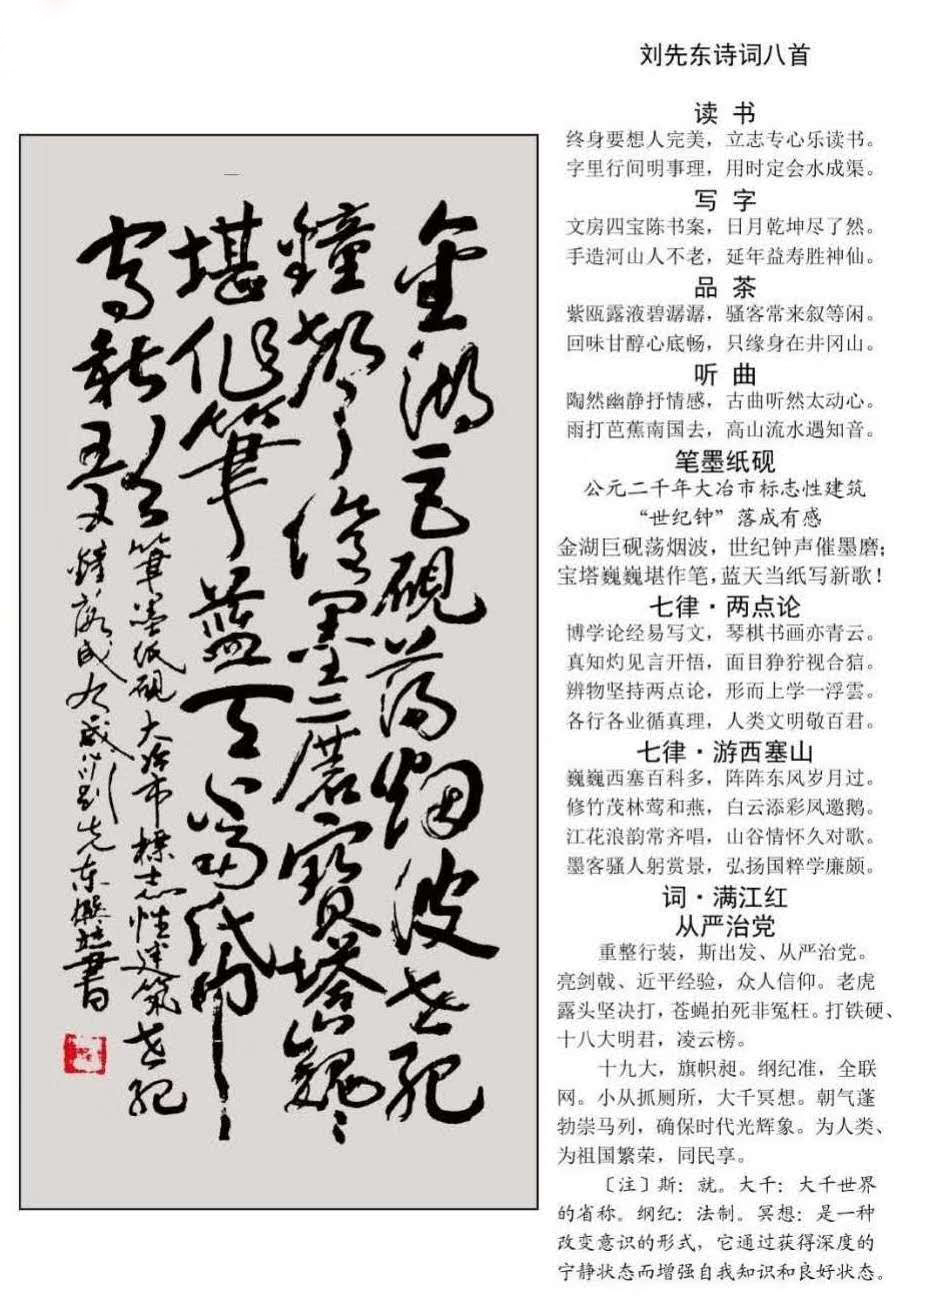 金湖巨硯蕩烟波世纪
鐘聲催墨磨寶塔巍
堪作筆藍天當紙
寫新歌
筆墨纸硯大冶市標志性建筑世纪
鐘落成有感刘先东撰并書
刘先东诗词八首
读 书
终身要想人完美，立志专心乐读书。
字里行间明事理，用时定会水成渠。
写 字
文房四宝陈书案，日月乾坤尽了然。
手造河山人不老，延年益寿胜神仙。
品 茶
紫瓯露液碧潺潺，骚客常来叙等闲。
回味甘醇心底畅，只缘身在井冈山。
听 曲
陶然幽静抒情感，古曲听然太动心。
雨打芭蕉南国去，高山流水遇知音。
笔墨纸砚
公元二千年大冶市标志性建筑
“世纪钟”落成有感
金湖巨砚荡烟波，世纪钟声催墨磨；
宝塔巍巍堪作笔，蓝天当纸写新歌！
七律·两点论
博学论经易写文，琴棋书画亦青云。
真知灼见言开悟，面目狰狞视合。
辨物坚持两点论，形而上学一浮雲。
各行各业循真理，人类文明敬百君。
七律·游西塞山
巍巍西塞百科多，阵阵东风岁月过。
修竹茂林莺和燕，白云添彩凤邀鹅。
江花浪韵常齐唱，山谷情怀久对歌。
墨客骚人躬赏景，弘扬国粹学廉颇。
词·满江红
从严治党
重整行装，斯出发、从严治党。
亮剑戟、近平经验，众人信仰。老虎
露头坚决打，苍蝇拍死非冤枉。打铁硬、
十八大明君，凌云榜。
十九大，旗帜昶。纲纪准，全联
网。小从抓厕所，大千冥想。朝气蓬
勃崇马列，确保时代光辉象。为人类、
为祖国繁荣，同民享。
〔注〕斯：就。大千：大千世界
的省称。纲纪：法制。冥想：是一种
改变意识的形式，它通过获得深度的
宁静状态而增强自我知识和良好状态。